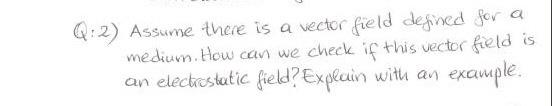 Q:2) Assume there is a vector field defined for a
medium. How can we check if this vector field is
an electrostatic field? Explain with an example.